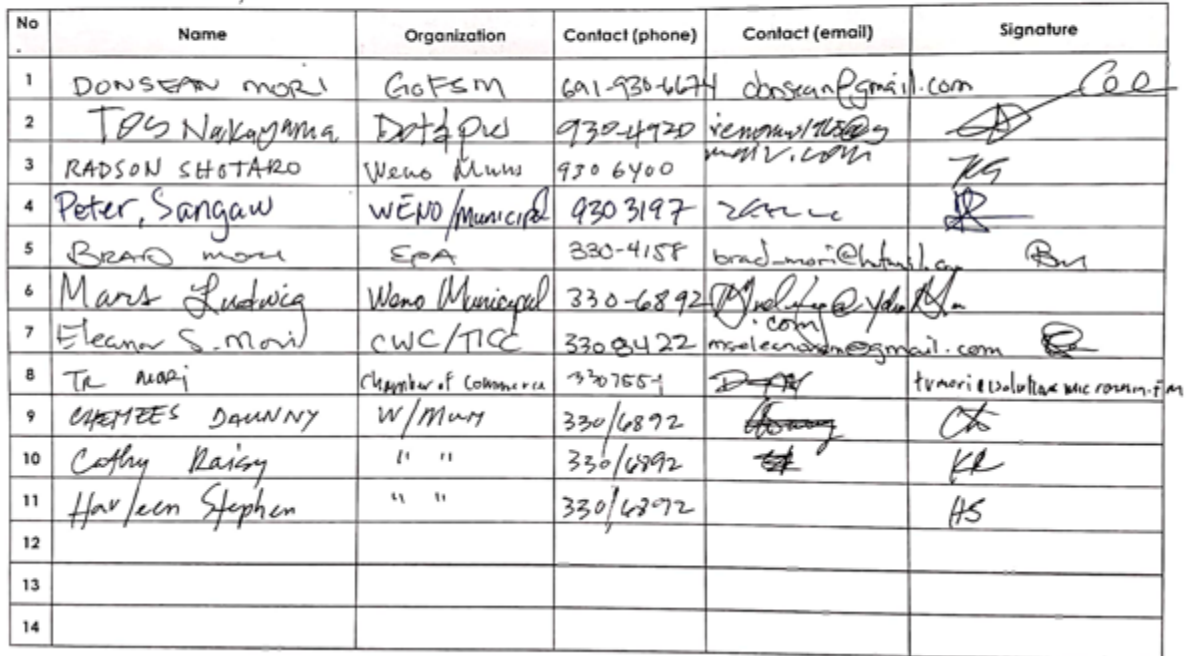 No. Name Organization Contact (phone) Contact (email) Signature
1 DONSEAN MORI GOFSM 691-930-6674 donsean@gmail.com
2 TOS Nakayama 930-4920
3 RADSON SHOTARO Weno Muni 930 6400 KS
4 Peter, Sangaw WENO/Municipal 930 3197
5 BRAD mori EPA 330-4158 brad_mori@hotmail.com
6 Mars Ludwig Weno Municipal 330-6892
.com
7 Eleanor S. Mori CWC/TICC 330 8422
8 TR MORI Chamber of Commerce 330755
9 CHEMEES DAUNNY W/Mun 330/6892
10 Cathy Raisy " " 330/6892 KR
11 Harleen Stephen " " 330/6892 HS
12
13
14